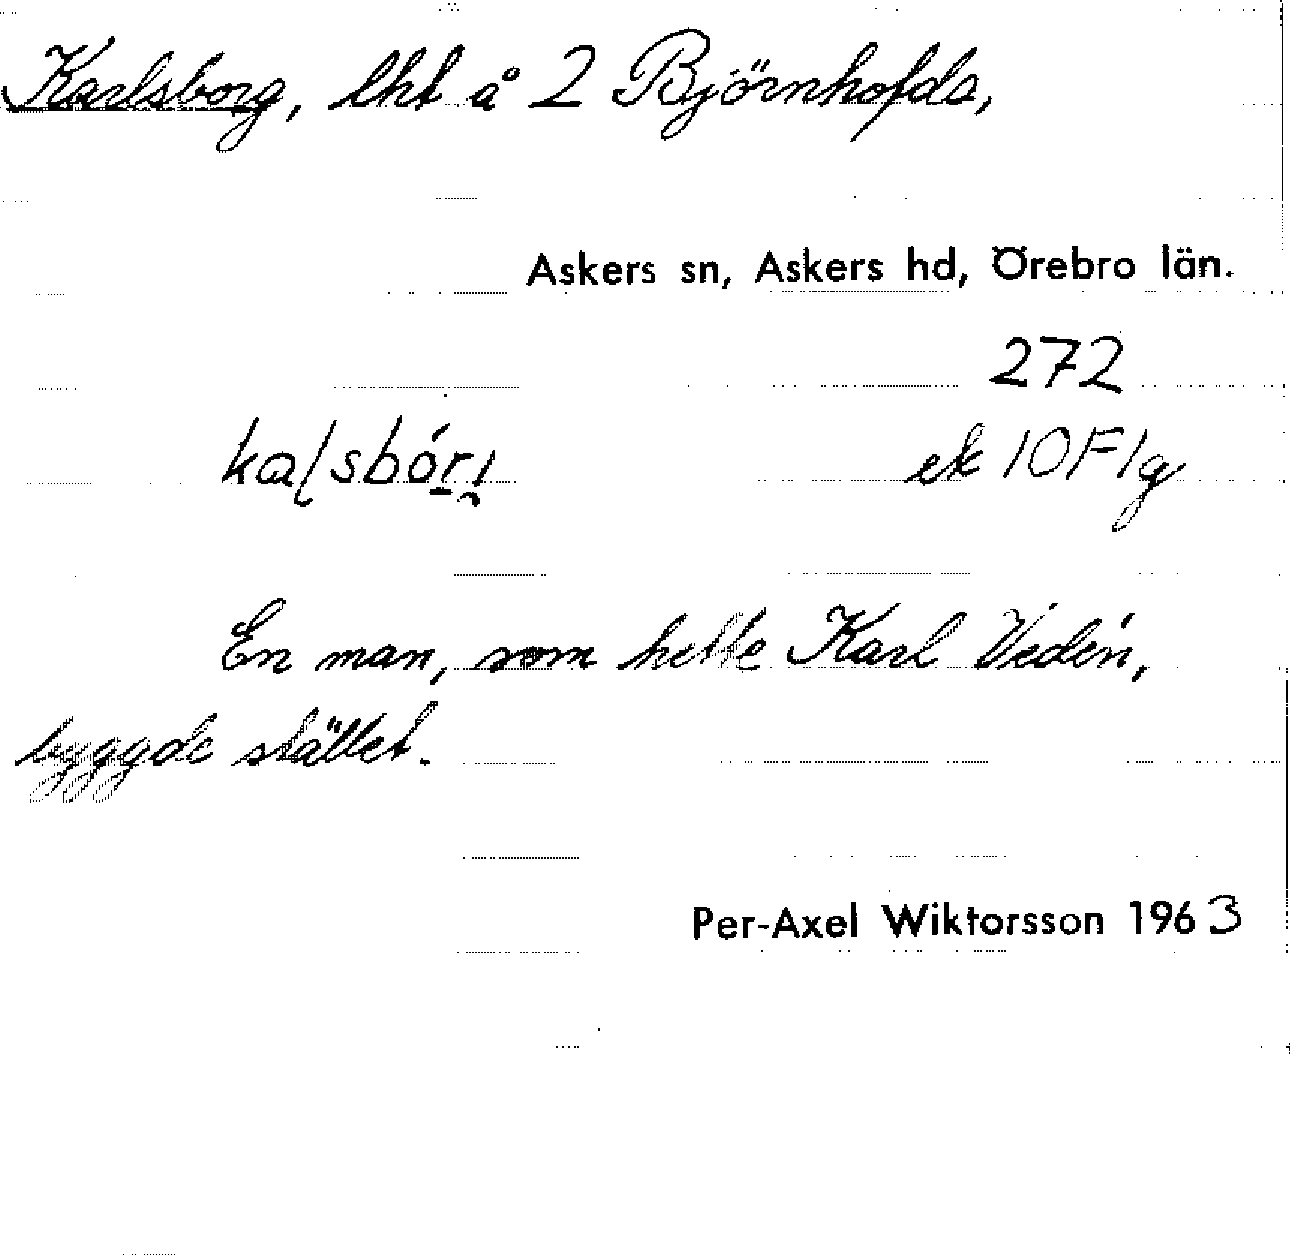 Karlsborg, lht å 2 Björnhofda,
Askers sn, Askers hd, Örebro län.
272
ek 10F1g
En man, som hette Karl Vedén,
byggde stället.
Per-Axel Wiktorsson 1963